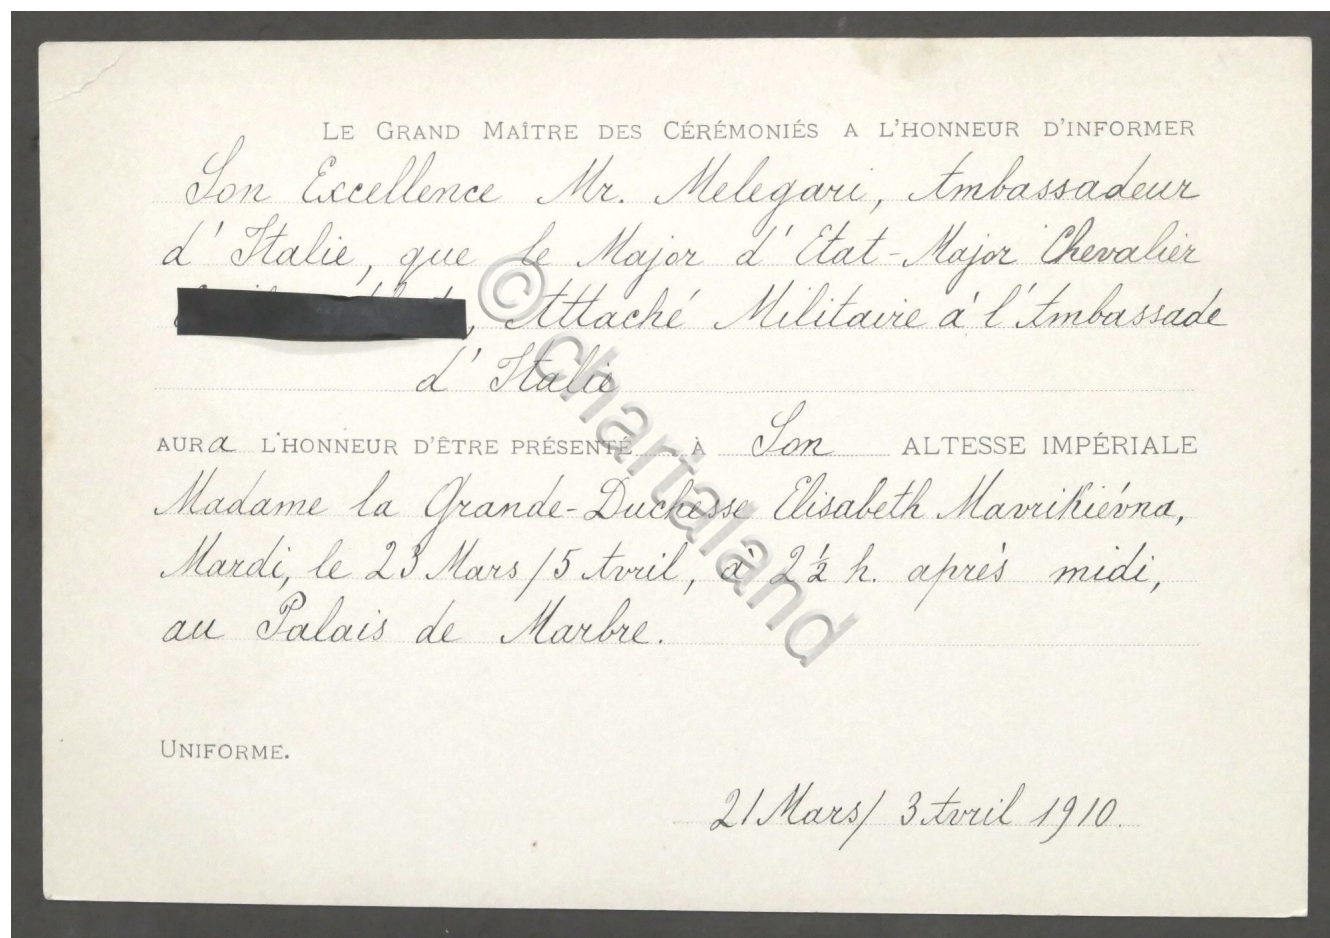 LE GRAND MAÎTRE DES CÉRÉMONIÉS A L'HONNEUR D'INFORMER
Son Excellence Mr. Melegari, Ambassadeur
d'Italie, que le Major d'Etat-Major Chevalier
, Attaché Militaire à l'Ambassade
d'Italie
AURa L'HONNEUR D'ÊTRE PRÉSENTÉ À Son ALTESSE IMPÉRIALE
Madame la Grande-Duchesse Elisabeth Mavrikiévna,
Mardi, le 23 Mars/5 Avril, à 2½ h. après midi,
au Palais de Marbre.
UNIFORME.
21 Mars/3 Avril 1910.
© chartaland